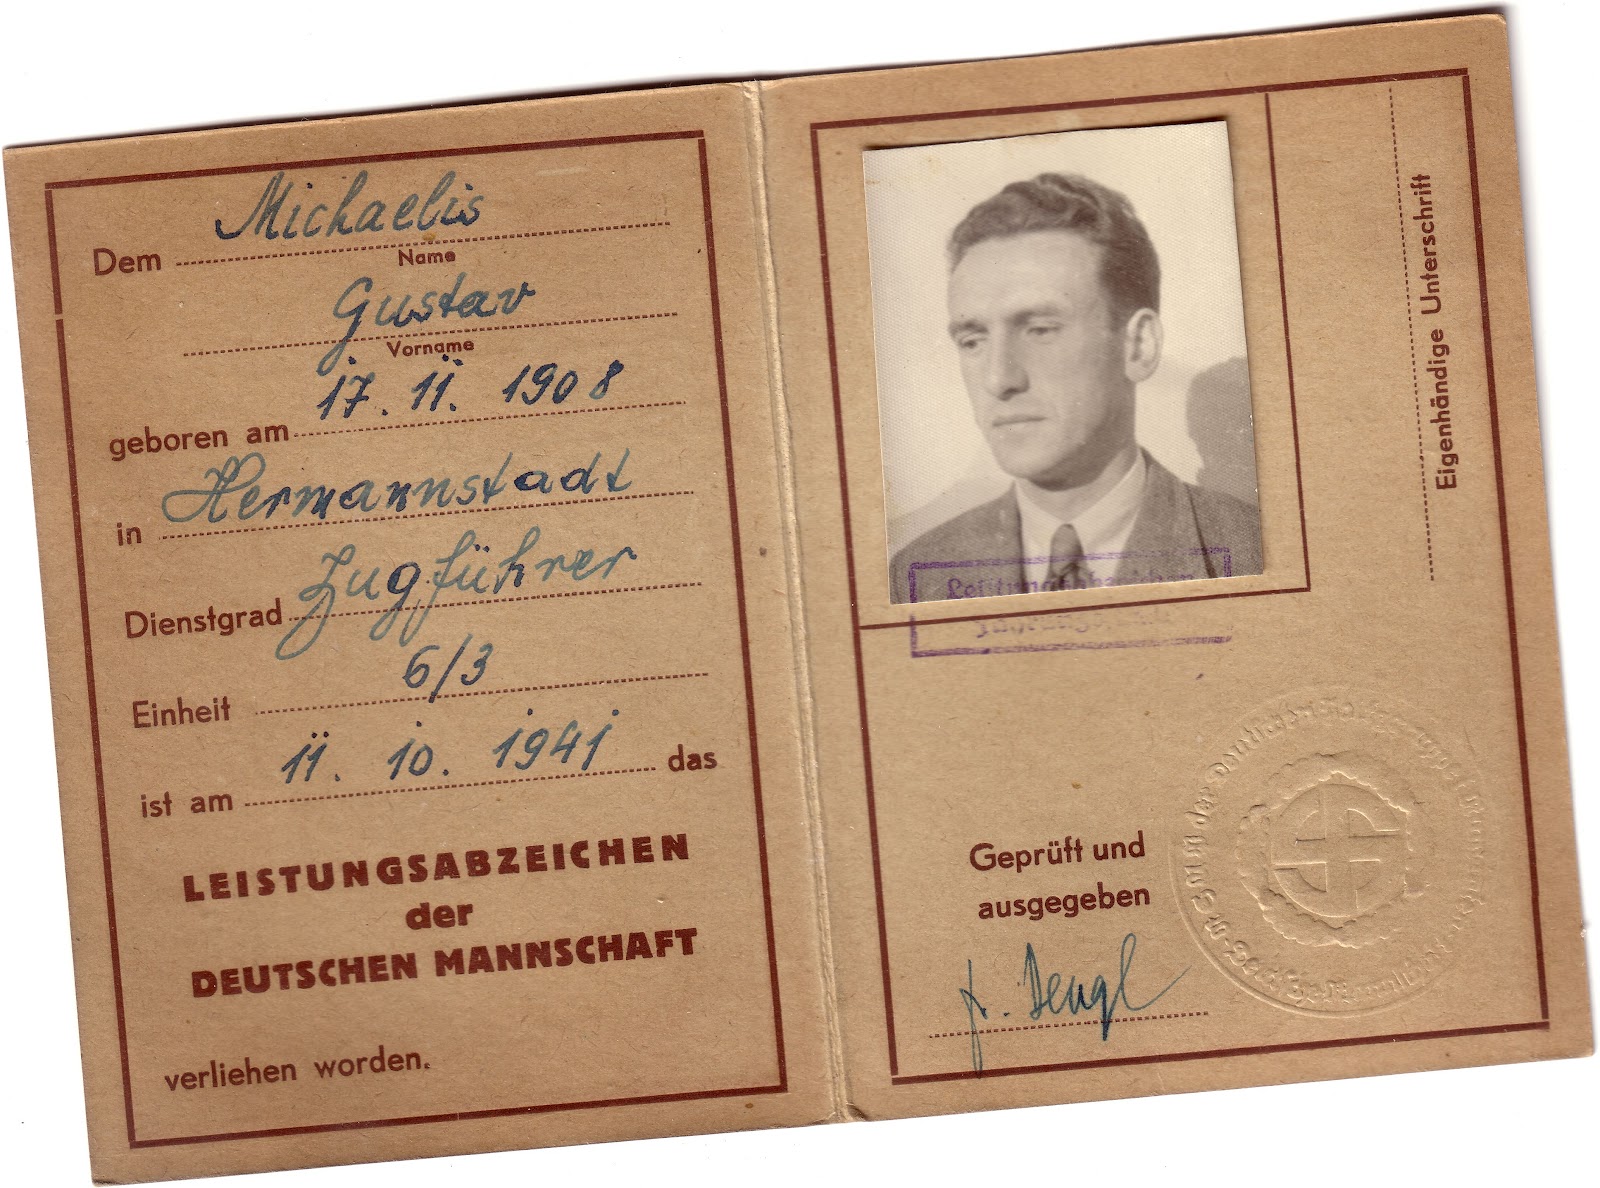 Dem Michaelis
Name
Gustav
Vorname
geboren am 17. 11. 1908
in Hermannstadt
Dienstgrad Zugführer
Einheit 6/3
ist am 11. 10. 1941 das
LEISTUNGSABZEICHEN
der
DEUTSCHEN MANNSCHAFT
verliehen worden.
Eigenhändige Unterschrift
Leistungsabzeichen
Geprüft und
ausgegeben
fr. Dengl